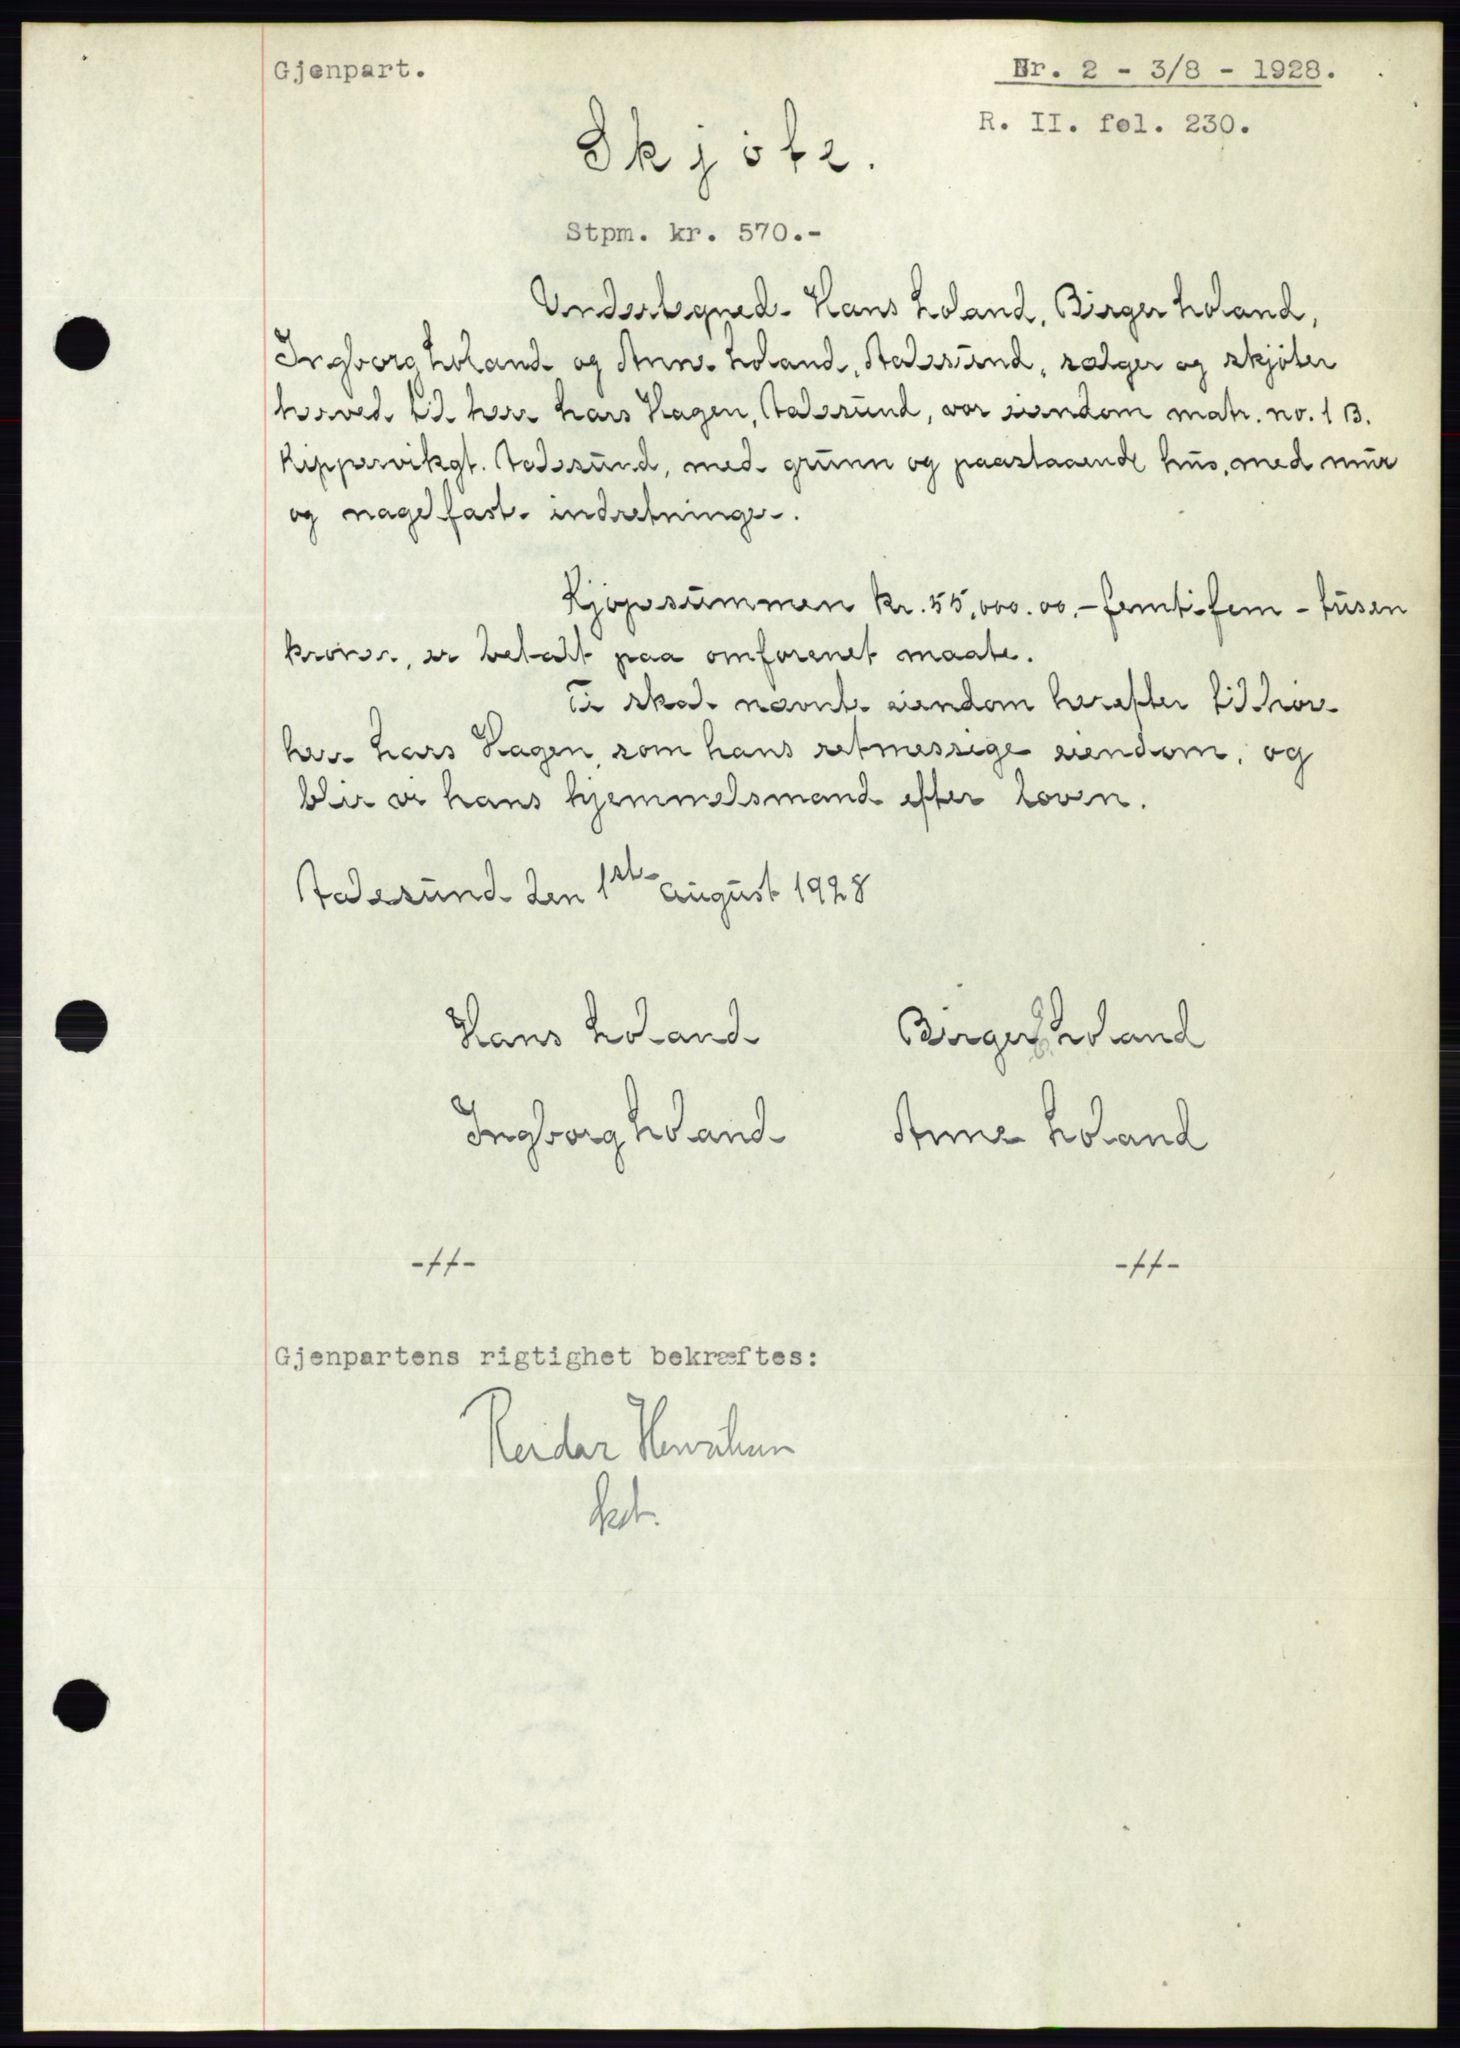 Gjenpart.
Nr. 2 - 3/8 - 1928.
R. II. fol. 230.
Skjöte.
Stpm. kr. 570.-
Undertegnede Hans Loland, Birger Loland,
Ingborg Loland og Anne Loland, Aalesund, sælger og skjöter
herved til herr Lars Hagen, Aalesund, vor eiendom matr. no. 1 B.
Kippervikgt. Aalesund, med grunn og paastaaende hus, med mur
og nagelfaste indretninger.
Kjöpesummen kr. 55,000.00,- femti-fem - tusen
kroner, er betalt paa omforenet maate.
Ti skal nævnte eiendom herefter tilhöre
herr Lars Hagen, som hans retmessige eiendom, og
blir vi hans hjemmelsmænd efter loven.
Aalesund den 1ste august 1928
Hans Loland Birger Loland
Ingborg Loland Anne Loland
-//- -//-
Gjenpartens rigtighet bekræftes:
Reidar
fset.